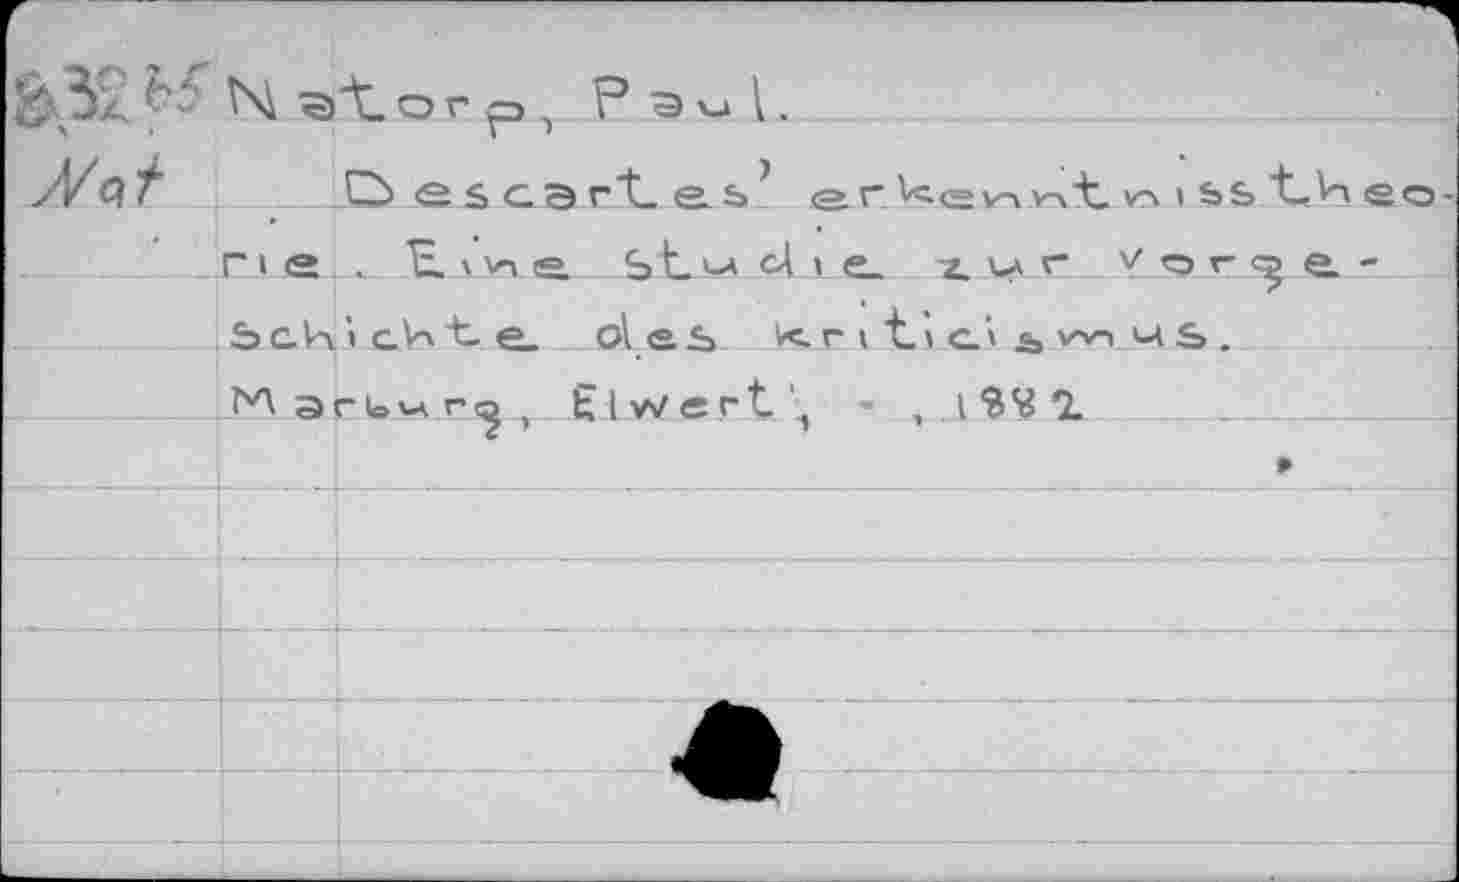 Natorp, Paul.
Nat Descartes' erkenntnisstheo-
rie. Eine Studie zur Vorge-
schichte des kriticismus.
Marburg, Elwert, - , 1882